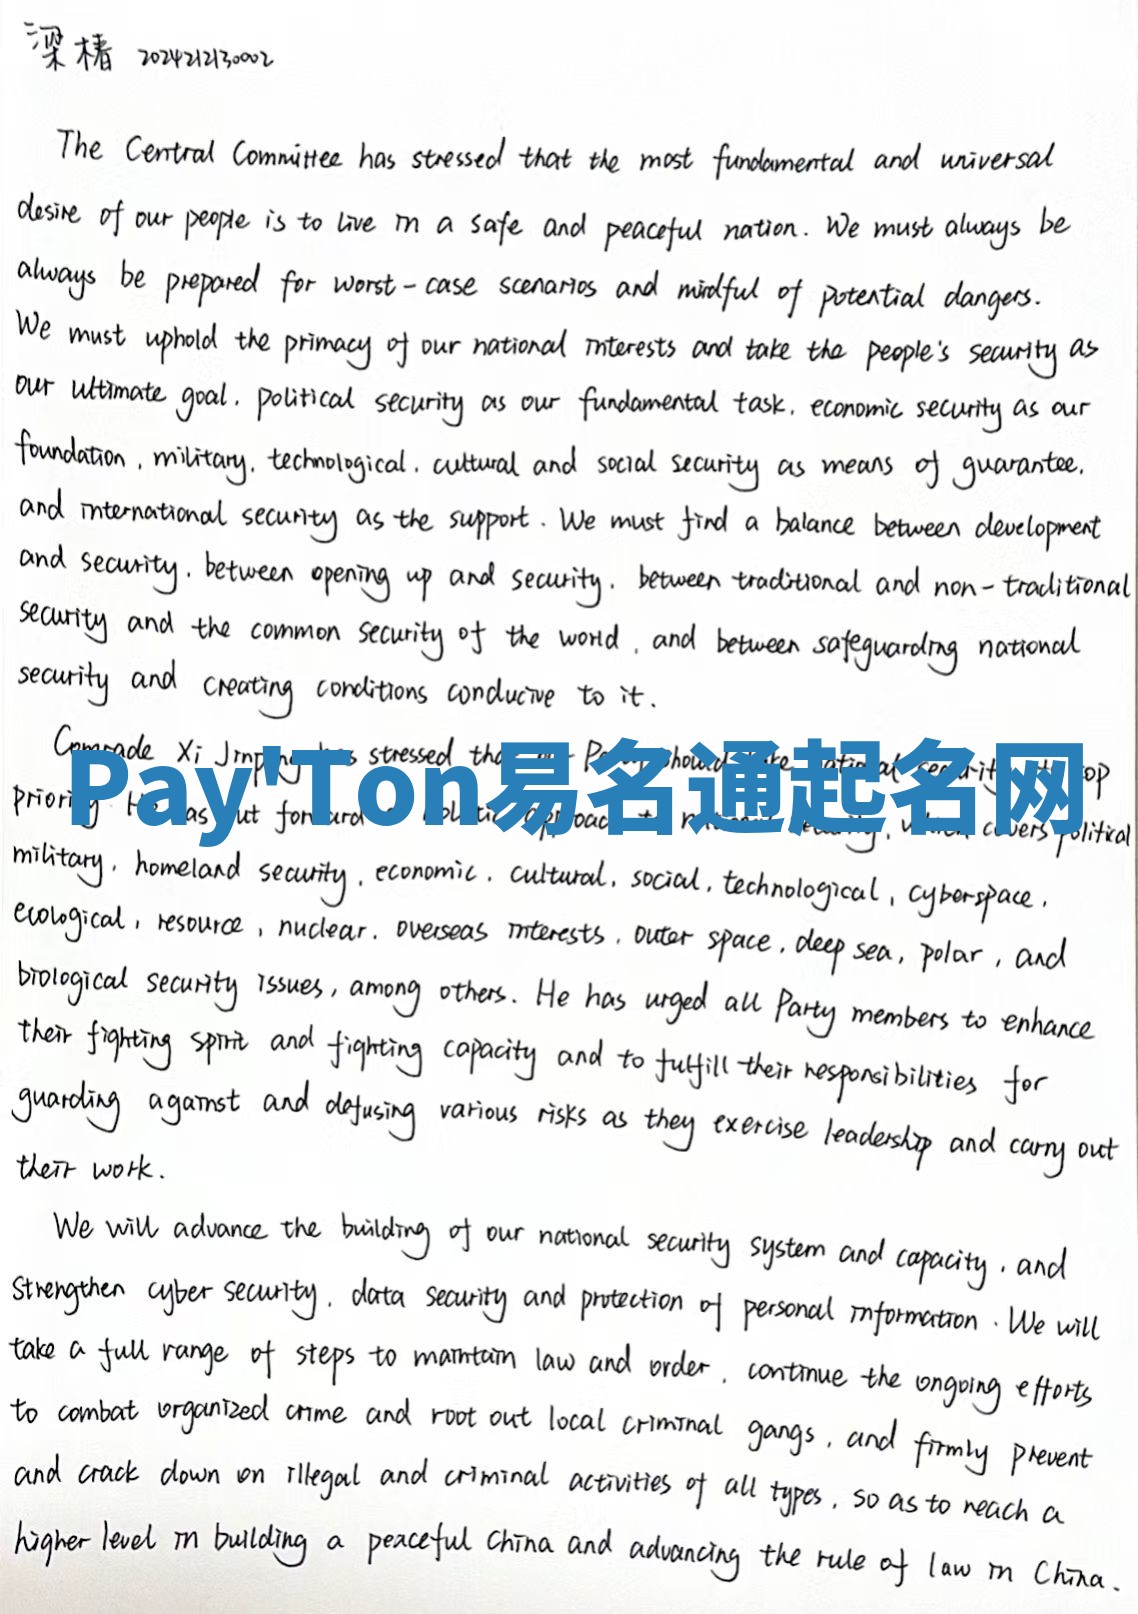 梁椿 2024212130002
The Central Committee has stressed that the most fundamental and universal
desire of our people is to live in a safe and peaceful nation. We must always be
always be prepared for worst-case scenarios and mindful of potential dangers.
We must uphold the primacy of our national interests and take the people's security as
our ultimate goal, political security as our fundamental task, economic security as our
foundation, military, technological, cultural and social security as means of guarantee,
and international security as the support. We must find a balance between development
and security, between opening up and security, between traditional and non-traditional
security and the common security of the world, and between safeguarding national
security and creating conditions conducive to it.
Comrade Xi Jinping has stressed that
Pay'Ton易名通起名网
priority. covers political
military, homeland security, economic, cultural, social, technological, cyberspace,
ecological, resource, nuclear, overseas interests, outer space, deep sea, polar, and
biological security issues, among others. He has urged all Party members to enhance
their fighting spirit and fighting capacity and to fulfill their responsibilities for
guarding against and defusing various risks as they exercise leadership and carry out
their work.
We will advance the building of our national security system and capacity, and
strengthen cyber security, data security and protection of personal information. We will
take a full range of steps to maintain law and order, continue the ongoing efforts
to combat organized crime and root out local criminal gangs, and firmly prevent
and crack down on illegal and criminal activities of all types, so as to reach a
higher level in building a peaceful China and advancing the rule of law in China.